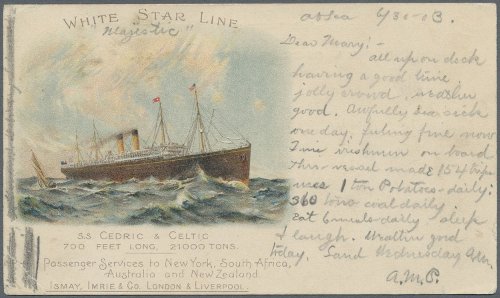 WHITE STAR LINE
"Majestic"
S.S. CEDRIC & CELTIC
700 FEET LONG, 21000 TONS.
Passenger Services to New York, South Africa,
Australia and New Zealand.
ISMAY, IMRIE & Co. LONDON & LIVERPOOL.
at Sea 6/30-03.
Dear Mary! -
all up on deck
having a good time
jolly crowd, weather
good. Awfully sea sick
one day, feeling fine now
Irishmen on board
this vessel made 154 trips
uses 1 ton Potatoes-daily.
360 tons coal daily.
Eat 6 meals-daily sleep
& laugh. Weather good
today, Land Wednesday
A.M.P.